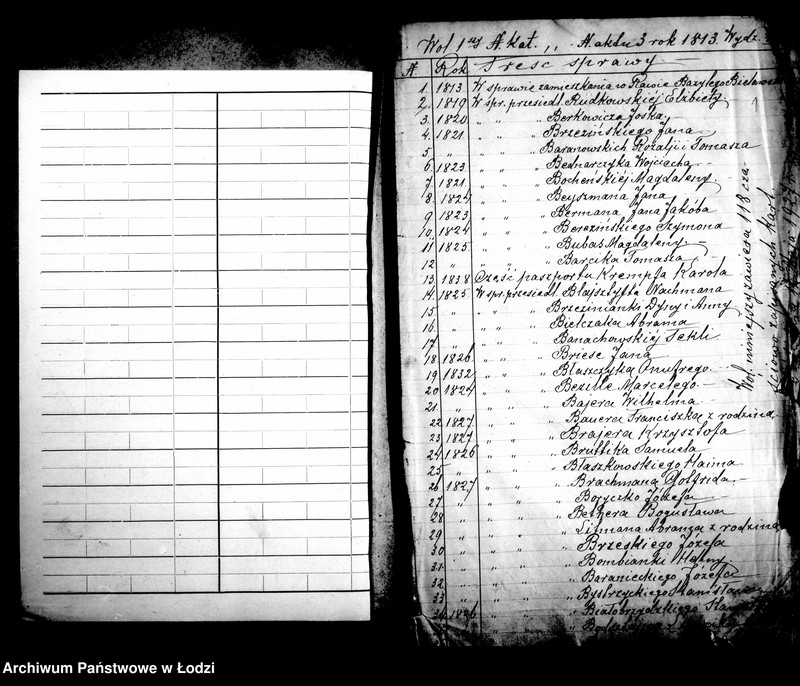 Vol 1 us A. Kat. ,, A. aktu 3 rok 1813. Wydz.
A Rok Treść sprawy
1. 1813. W sprawie zamieszkania w Rawie Bazylego
2. 1819 W spr. przesiedl. Rudkowskiéj Elżbiety
3. 1820 " " " Berkowicza Joska
4. 1821 " " " Brzezińskiego Jana
5 " " " " Baranowskich Rozalji i Tomasza
6. 1823 " " " Bednarczyka Wojciecha
7. 1821. " " " Bocheńskiéj Magdaleny.
8 1824 " " " Beyszmana Jana
9 1823 " " " Bermana Jana Jakóba
10, 1824 " " " Berezińskiego Szymona
11 1825 " " " Bubas Magdaleny
12 " " " " Barcika Tomasza
13. 1838 Część paszportu Krempfa Karola
14. 1825 W spr. przesiedl. Wachmana
15 " " " " Brzezinianki i Anny
16 " " " " Bielczaka Abrama
17 " " " " Banachowskiéj Tekli
18 1826 " " " Briese Jana
19 1832 " " " Błaszczyka Onufrego
20 1824 " " " Bezille Marcelego
21 " " " " Bajera Wilhelma
22 1827 " " " Bauera Franciszka z rodziną
23 1827 " " " Brajera Krzysztofa
24 1826 " " " Bruffika Samuela
25 " " " " Błaszkowskiego Haima
26 1827 " " " Brachmana Gotfrida
27 " " " " Boryczko Józefa
28 " " " " Bethera Bogusława
29 " " " " Abrama z rodziną
30 " " " " Brzeskiego Józefa
31 " " " " Bombianki Hanny
32 " " " " Baranieckiego Józefa
33 " " " " Bystrzyckiego Stanisława
34 1826 " " " Białobrzydzkiego
Vol. niniejszy zawiera 118
zapisanych kart.
Archiwum Państwowe w Łodzi